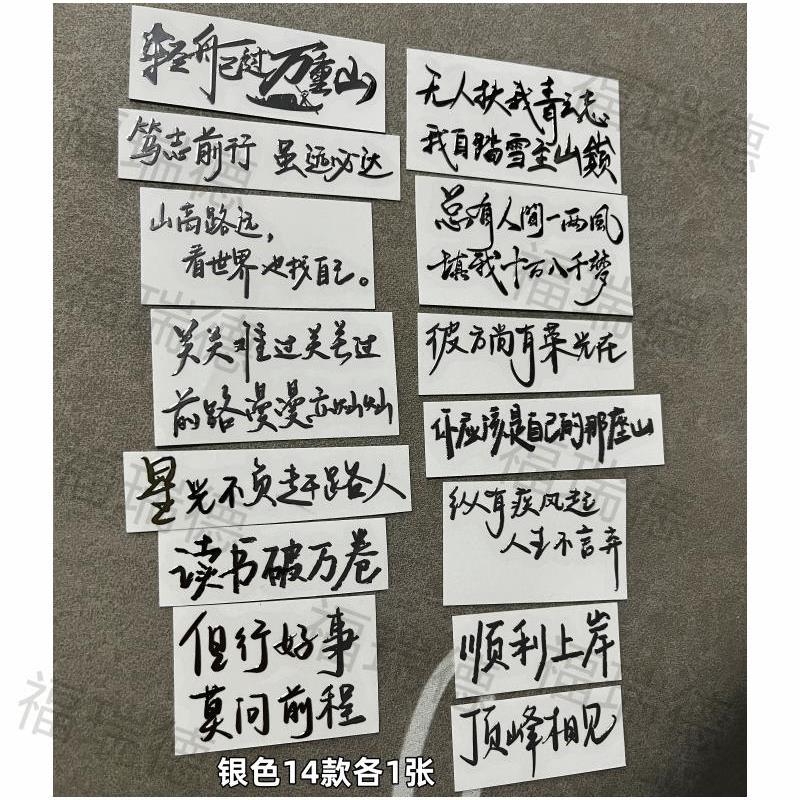 轻舟已过万重山
笃志前行 虽远必达
山高路远,
看世界也找自己。
关关难过关关过
前路漫漫亦灿灿
星光不负赶路人
读书破万卷
但行好事
莫问前程
无人扶我青云志
我自踏雪至山巅
总有人间一两风
填我十万八千梦
彼方尚有荣光在
你应该是自己的那座山
纵有疾风起
人生不言弃
顺利上岸
顶峰相见
银色14款各1张
福瑞德